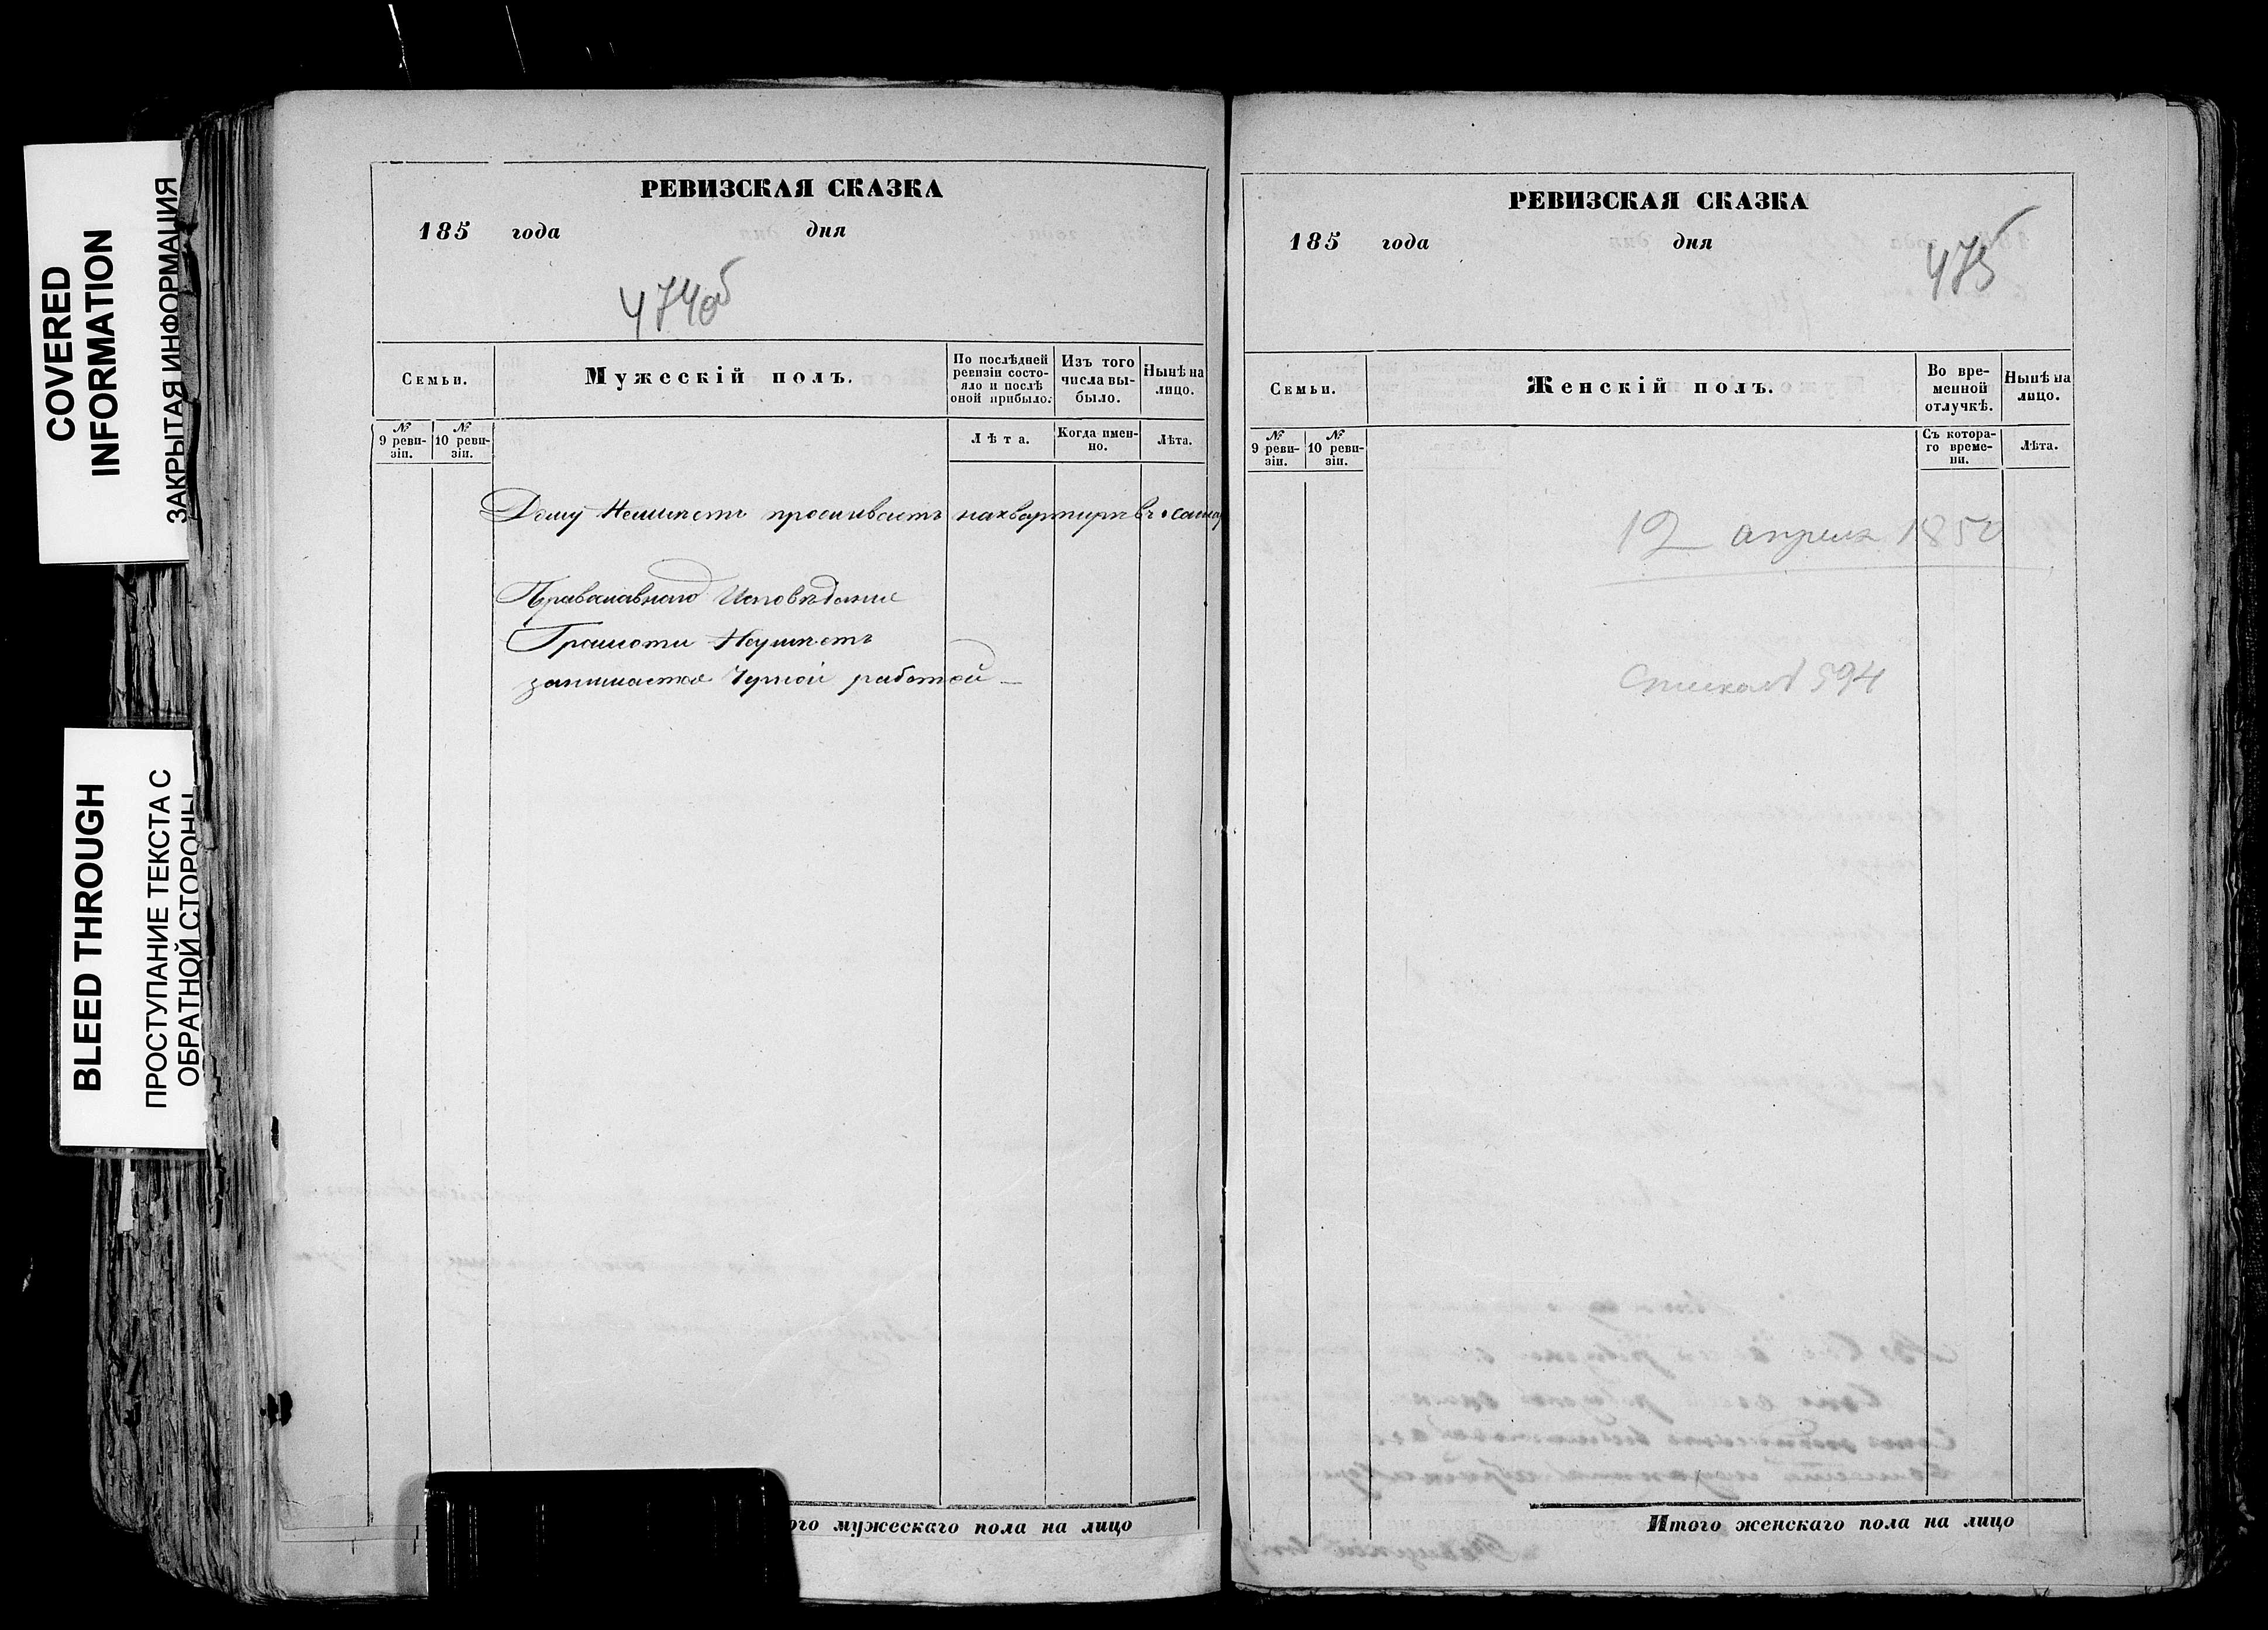 COVERED
INFORMATION
ЗАКРЫТАЯ ИНФОРМАЦИЯ
BLEED THROUGH
ПРОСТУПАНИЕ ТЕКСТА С
ОБРАТНОЙ СТОРОНЫ
РЕВИЗСКАЯ СКАЗКА
185 года дня
474об
Семьи.
Мужескій полъ.
По послѣдней
ревизіи состо-
яло и послѣ
оной прибыло.
Изъ того
числа вы-
было.
Нынѣ на
лицо.
№
9 реви-
зіи.
№
10 реви-
зіи.
Лѣта.
Когда имен-
но.
Лѣта.
Дому Неимѣетъ проживаетъ наквартирѣ въ
Православнаго Исповѣданія
Грамоти Неумѣетъ
занимается Черной работой —
ого мужескаго пола на лицо
РЕВИЗСКАЯ СКАЗКА
185 года дня
475
Семьи.
Женскій полъ.
Во вре-
менной
отлучкѣ.
Нынѣ на
лицо.
№
9 реви-
зіи.
№
10 реви-
зіи.
Съ котора-
го време-
ни.
Лѣта.
12 апреля 1850
594
Итого женскаго пола на лицо